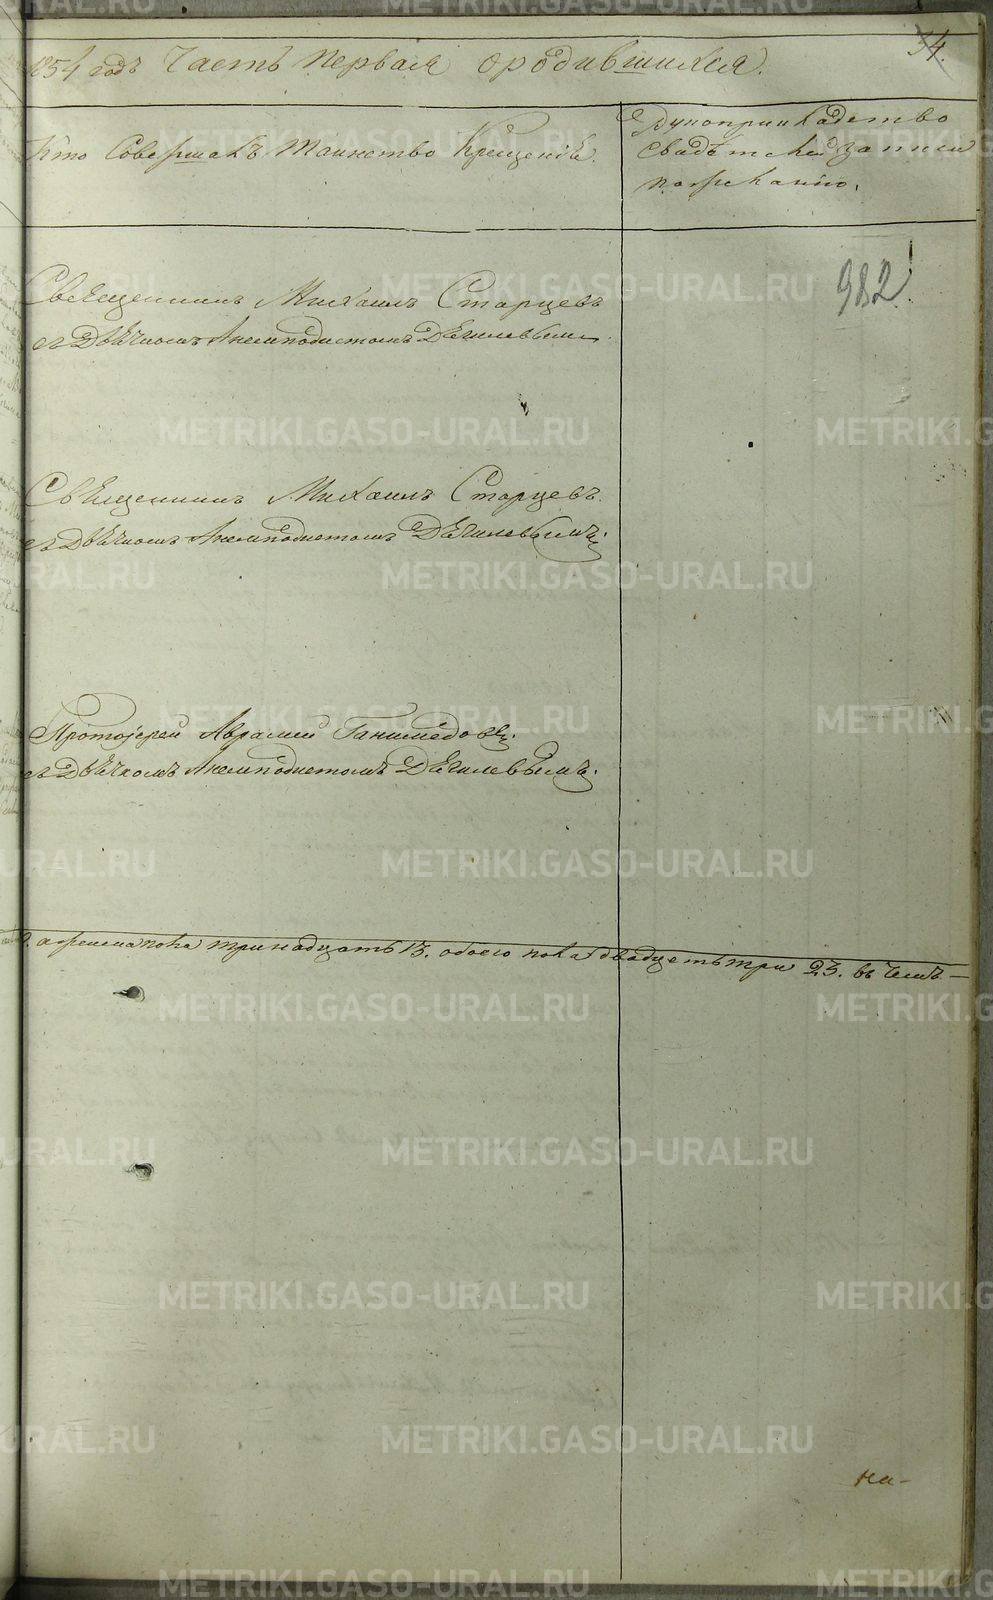 34.
1854 годъ Часть Первая о родившихся.
Кто Совершалъ Таинство Крещенiе.
Рукоприкладство
Свидѣтелей записи
по желанiю.
982
Священникъ Михаилъ Старцевъ
съ Дьячкомъ Анемподистомъ Дягилевымъ
Священникъ Михаилъ Старцевъ.
съ Дьячкомъ Анемподистомъ Дягилевымъ.
Протоiерей Аврамiй Ганимедовъ.
съ Дьячкомъ Анемподистомъ Дягилевымъ.
а женска пола тринадцать 13. обоего пола двадцеть три 23. въ чемъ —
на-
METRIKI.GASO-URAL.RU